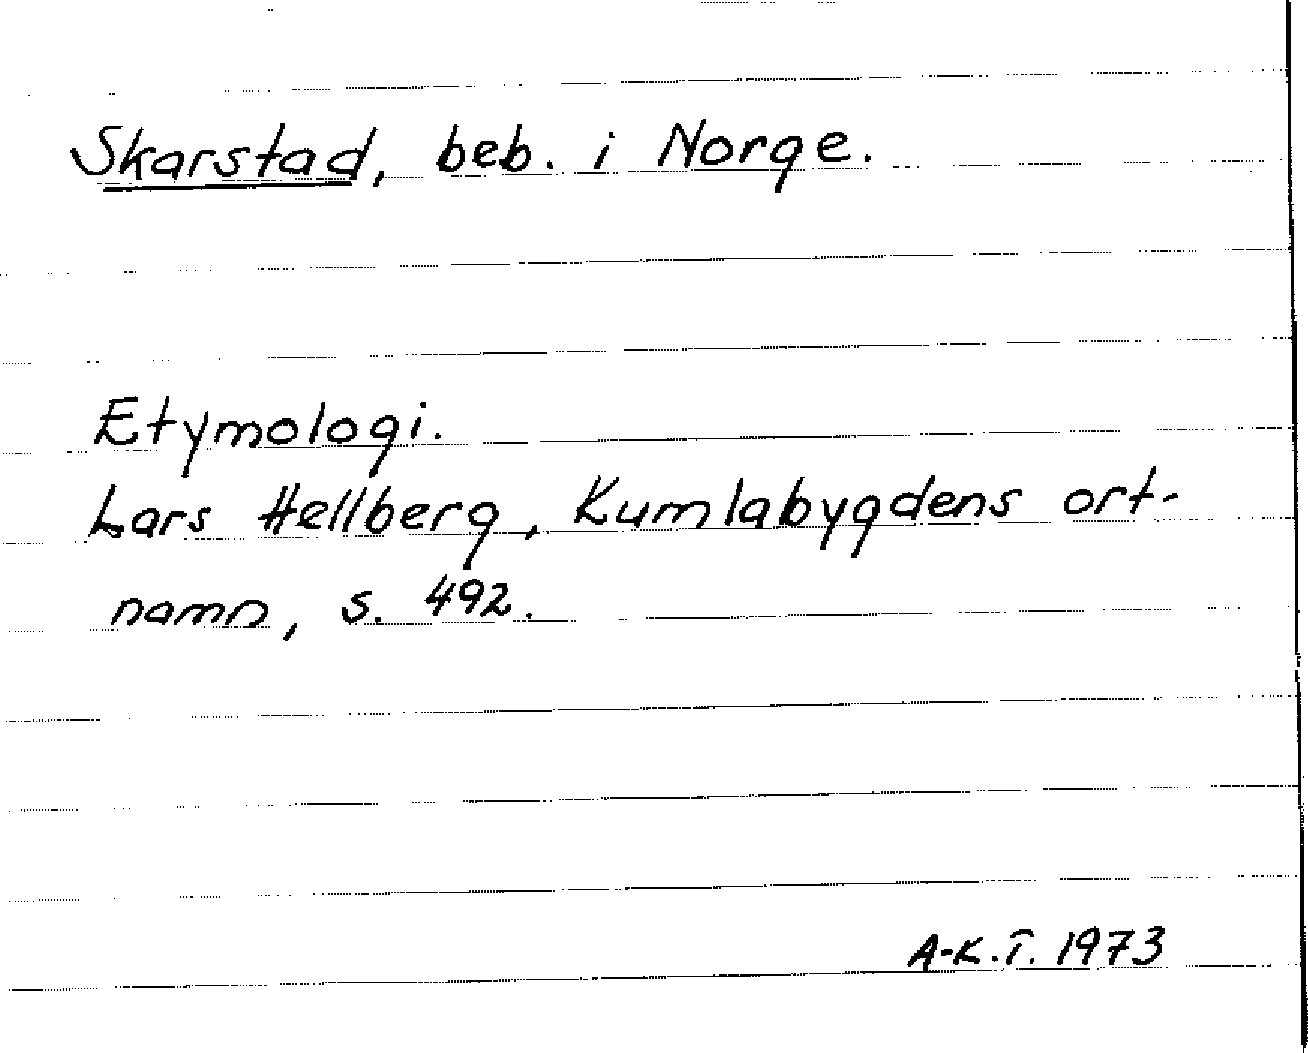 Skarstad, beb. i Norge.
Etymologi.
Lars Hellberg, Kumlabygdens ort-
namn, s. 492.
A-K.T. 1973